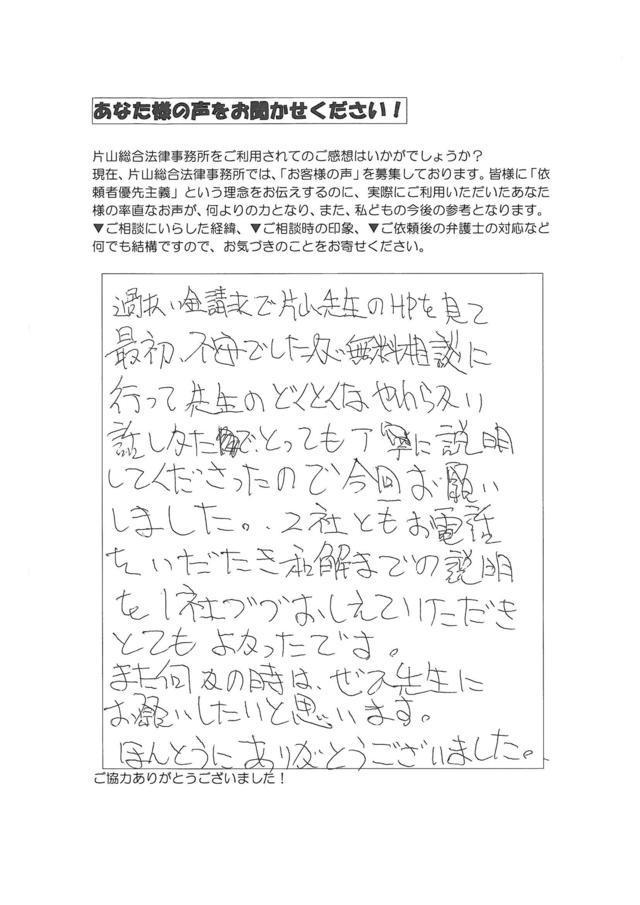 あなた様の声をお聞かせください!
片山総合法律事務所をご利用されてのご感想はいかがでしょうか?
現在、片山総合法律事務所では、「お客様の声」を募集しております。皆様に「依
頼者優先主義」という理念をお伝えするのに、実際にご利用いただいたあなた
様の率直なお声が、何よりの力となり、また、私どもの今後の参考となります。
▼ご相談にいらした経緯、▼ご相談時の印象、▼ご依頼後の弁護士の対応など
何でも結構ですので、お気づきのことをお寄せください。
過払い金請求で片山先生のHPを見て
最初、不安でしたが無料相談に
行って先生のどくとくなやわらかい
話しかたで、とっても丁寧に説明
してくださったので今回お願い
しました。2社ともお電話
をいだたき和解までの説明
を1社づづおしえていただき
とてもよかったです。
また何かの時は、ぜひ先生に
お願いしたいと思います。
ほんとうにありがとうございました。
ご協力ありがとうございました!